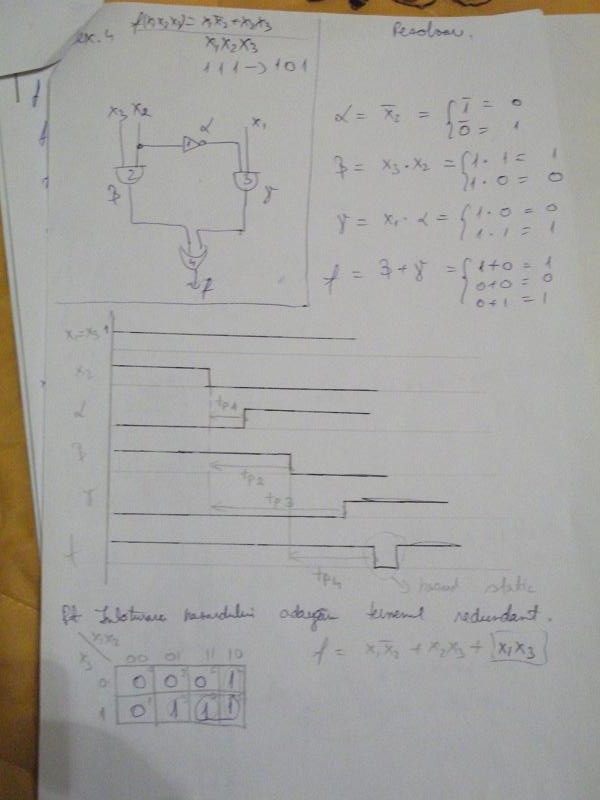 ex. 4 f(x₁x₂x₃) = x₁x̄₂ + x₂x₃
x₁x₂x₃
111 → 101
Rezolvare.
x₃ x₂ α x₁
1
2 3
β γ
4
f
α = x̄₂ = { 1̄ = 0
0̄ = 1
β = x₃ · x₂ = { 1 · 1 = 1
1 · 0 = 0
γ = x₁ · α = { 1 · 0 = 0
1 · 1 = 1
f = β + γ = { 1+0 = 1
0+0 = 0
0+1 = 1
x₁=x₃ 1
x₂
α tp1
β
tp2
γ tp3
f
tp4 → hazard static
Pt înlăturarea hazardului adăugăm termenul redundant.
f = x₁x̄₂ + x₂x₃ + x₁x₃
x₁x₂
x₃ 00 01 11 10
0 0 0 0 1
1 0 1 1 1